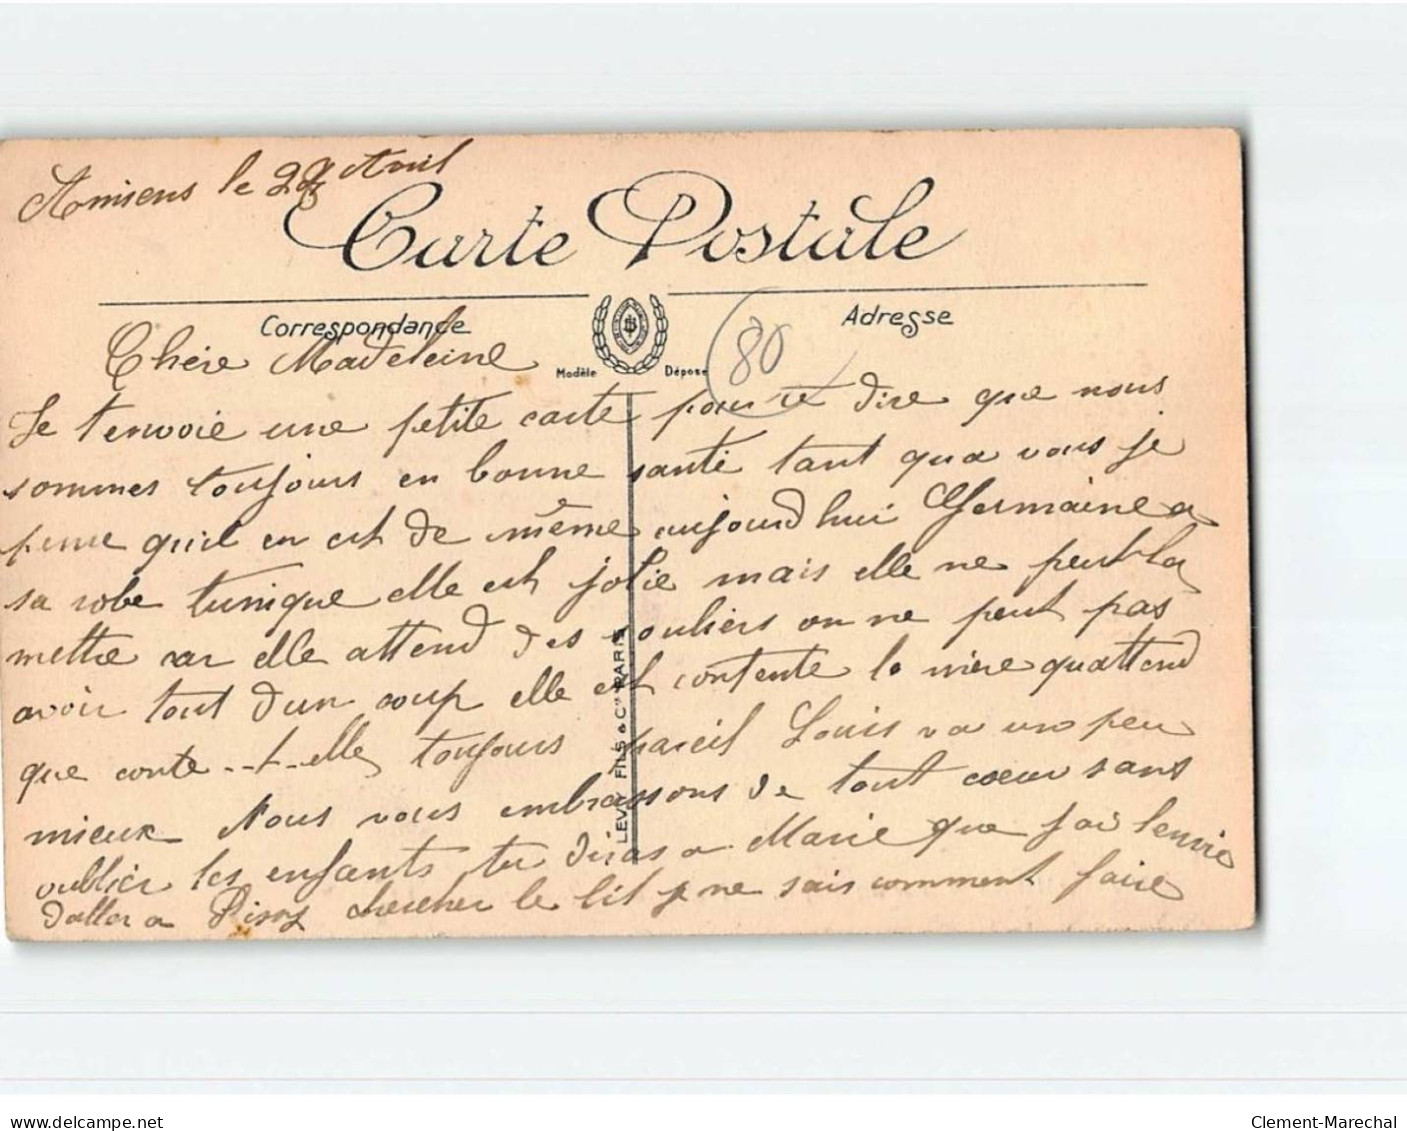 Amiens le 29 Avril
Carte Postale
Correspondance
Adresse
80
Modèle
Déposé
Chère Madeleine
Je t envoie une petite carte pour te dire que nous
sommes toujours en bonne santé tant qua vous je
pense quil en est de même aujourd hui Germaine a
sa robe tunique elle est jolie mais elle ne peut la
mettre car elle attend des souliers on ne peut pas
avoir tout dun coup elle est contente la mère quattend
que conte -t-elle toujours pareil Louis va un peu
mieux Nous vous embrassons de tout cœur sans
oublier les enfants tu diras a Marie que jai lenvie
daller a chercher le lit je ne sais comment faire
LEVY FILS & Cie PARIS
delcampe.net
Clement-Marechal